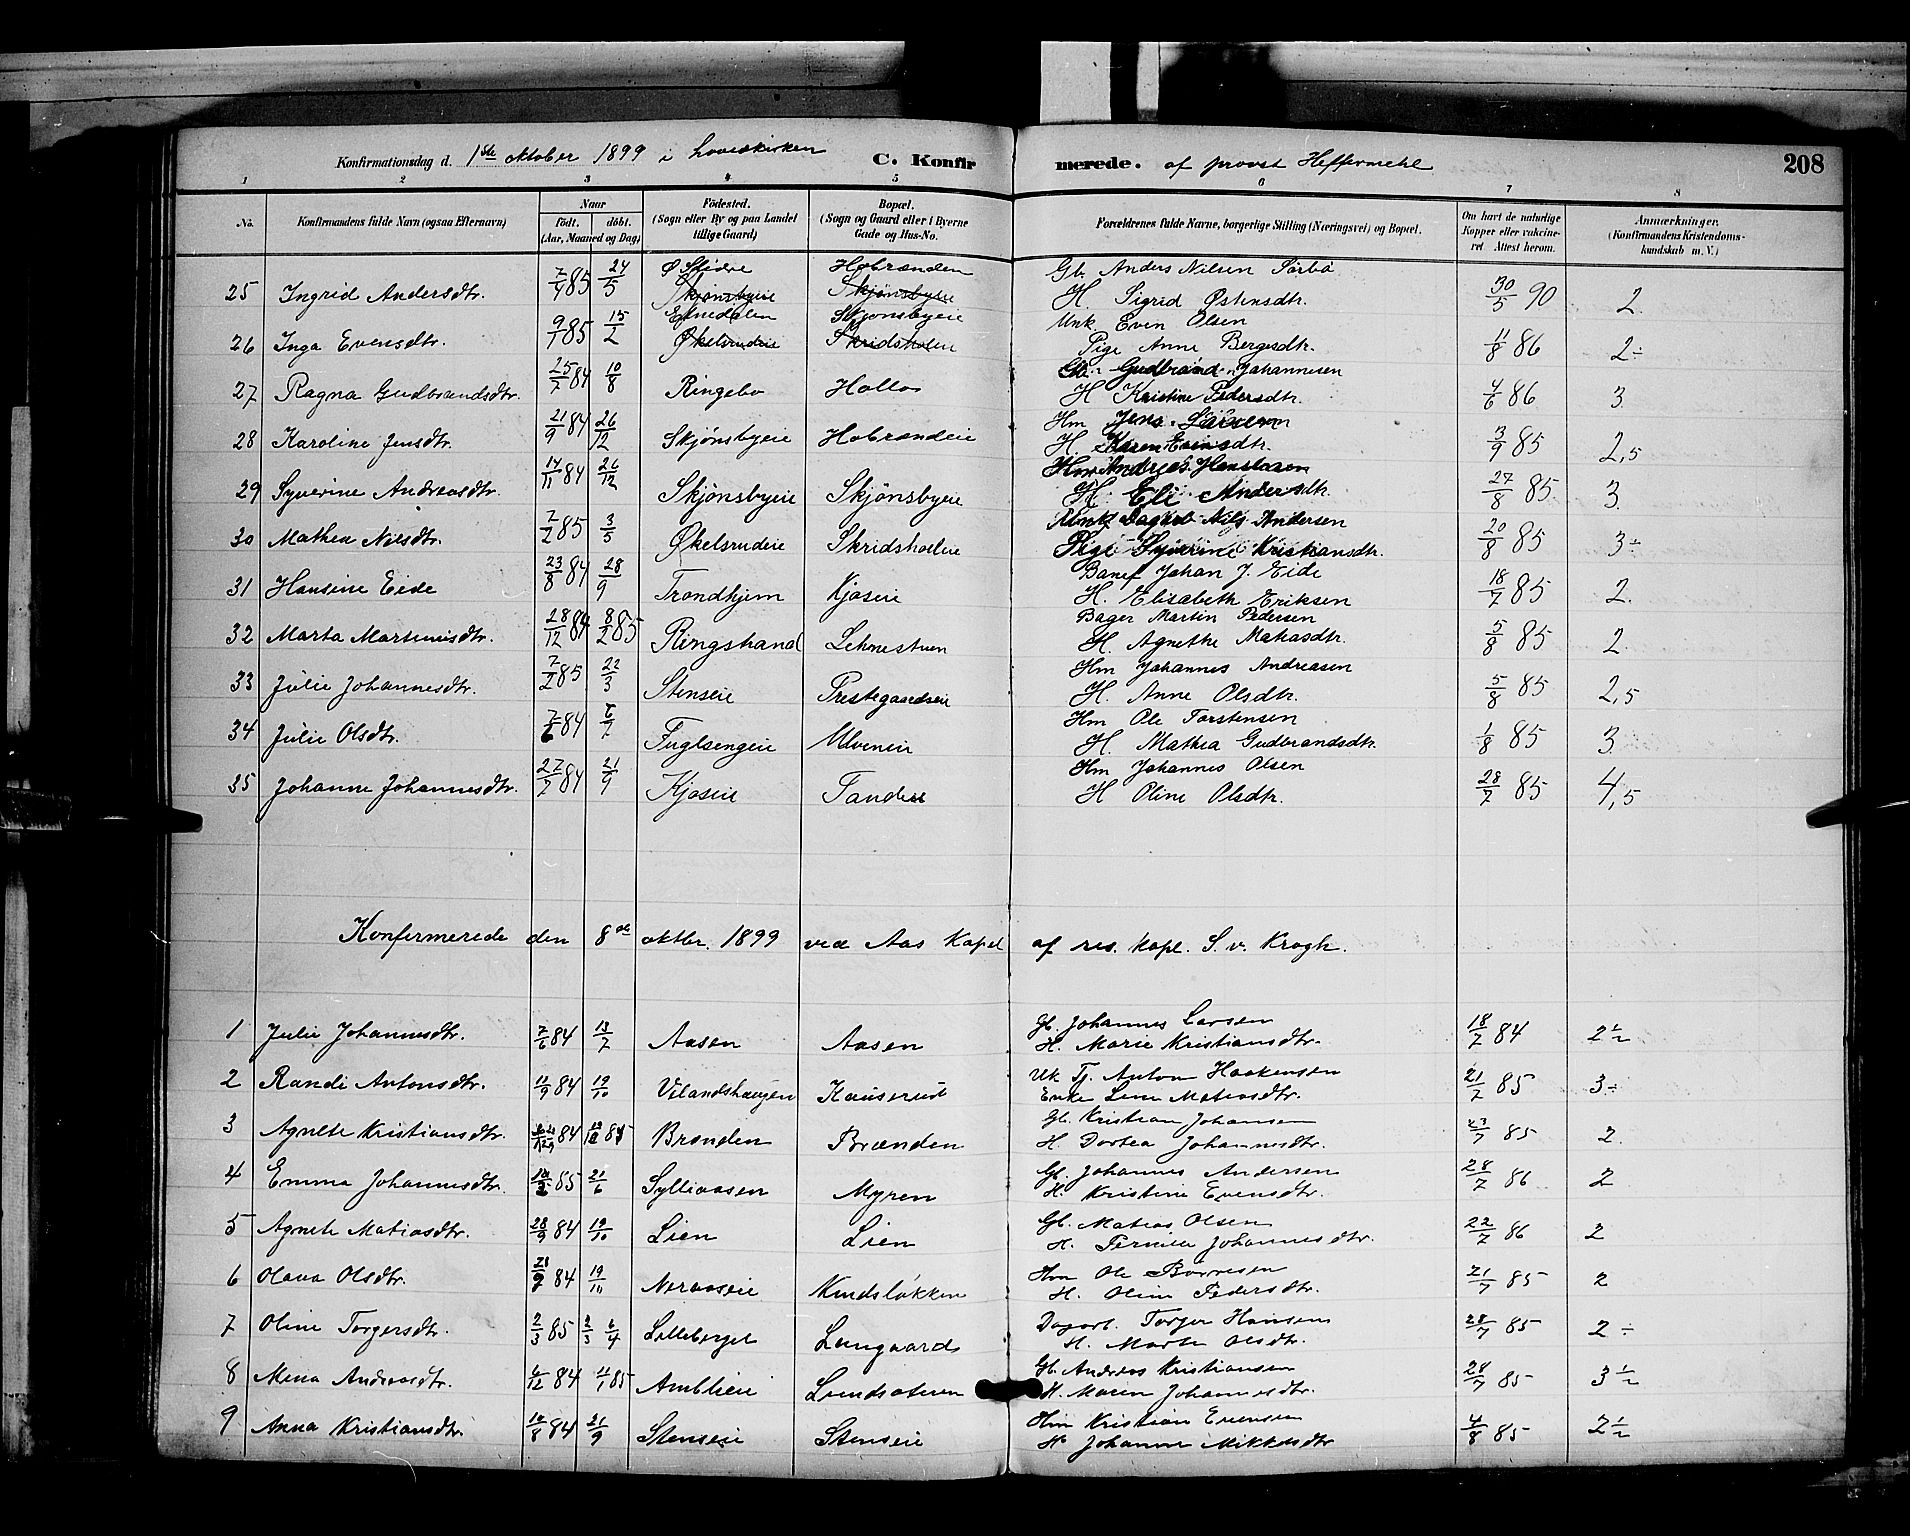 Konfirmationsdag d. 1ste oktober 1899 i Lovaskirken C. Konfirmerede. af provst Heffermehl 208
1 2 3 4 5 6 7 8
No. Konfirmandens fulde Navn (ogsaa Efternavn) Naar født. døbt. (Aar, Maaned og Dag) Fødested. (Sogn eller By og paa Landet tillige Gaard) Bopæl. (Sogn og Gaard eller i Byerne Gade og Hus-No. Forældrenes fulde Navne, borgerlige Stilling (Næringsvei) og Bopæl. Om havt de naturlige Kopper eller vakcineret. Attest herom. Anmærkninger. (Konfirmandens Kristendomskundskab m. V.)
25 Ingrid Andersdtr. 7/4 85 24/5 Ø Slidre Skjønsbyeie Hobrænden Skjønsbyeie Gb. Anders Nilsen Sørbø H. Sigrid Østensdtr. 30/5 90 2.
26 Inga Evensdtr. 9/1 85 15/2 Etnedalen Økelsrudeie Skjønsbyeie Skridsholen Unk. Even Olsen Pige Anne Bergesdtr. 11/8 86 2÷
27 Ragna Gudbrandsdtr. 25/7 84 10/8 Ringebo Hollos Gb. Gudbrand Johannesen H Kristine Pedersdtr. 4/6 86 3
28 Karoline Jensdtr. 21/9 84 26/12 Skjønsbyeie Hobrændeie Hm Jens Larsen H. Karen Evensdtr. 3/9 85 2,5
29 Syverine Andreasdtr. 14/11 84 26/12 Skjønsbyeie Skjønsbyeie Hm Andreas H. Eli Andersdtr. 27/8 85 3
30 Mathea Nilsdtr. 7/2 85 3/5 Økelsrudeie Skridsholeie Unk Dagarb Nils Andersen Pige Syverine Kristiansdtr. 20/8 85 3÷
31 Hansine Eide 23/8 84 28/9 Trondhjem Kjoseie Banef Johan J. Eide H. Elisabeth Eriksen 18/7 85 2.
32 Marta Martinusdtr. 28/12 84 8/2 85 Ringstrand Lehnestuen Bager Martin Pedersen H. Agnethe Matiasdtr. 5/8 85 2.
33 Julie Johannesdtr. 7/2 85 22/3 Stenseie Prestegaardseie Hm Johannes Andreasen H. Anne Olsdtr. 5/8 85 2,5
34 Julie Olsdtr. 7/6 84 6/7 Fuglsengeie Ulveneie Hm Ole Torstensen H. Mathea Gudbrandsdtr. 1/8 85 3
35 Johanne Johannesdtr. 27/7 84 21/9 Kjoseie Tandeie Hm Johannes Olsen H Oline Olsdtr. 28/7 85 4,5
Konfermerede den 8de oktbr. 1899 ved Aas Kapel af res. kapl. S. v. Krogh.
1 Julie Johannesdtr. 7/6 84 13/7 Aasen Aasen Gb. Johannes Larsen H. Marie Kristiansdtr. 18/7 84 2½
2 Randi Antonsdtr. 11/9 84 19/10 Vilandshaugen Kauserud Uk Tj. Anton Haakensen Enke Lina Matiasdtr. 21/7 85 3÷
3 Agnete Kristiansdtr. 84 85 Brænden Brænden Gb. Kristian Johansen H. Dortea Johannesdtr. 23/7 85 2.
4 Emma Johannesdtr. 85 21/6 Sylliaasen Myren Gb. Johannes Andersen H. Kristine Evensdtr. 28/7 86 2
5 Agnete Matiasdtr. 28/9 84 19/10 Lien Lien Gb. Matias Olsen H. Pernille Johannesdtr. 22/7 86 2
6 Olava Olsdtr. 84 19/10 Neraaseie Knudsløkken Hm Ole Børresen H. Oline Pedersdtr. 21/7 85 2
7 Oline Torgersdtr. 2/3 85 6/4 Lilleberget Lungaard Dagarb. Torger Hansen H. Marte Olsdtr. 28/7 85 2÷
8 Mina Andreasdtr. 6/12 84 11/1 85 Amblieie Lundsæteren Gb. Andreas Kristiansen H. Maren Johannesdtr. 28/7 85 3½
9 Anna Kristiansdtr. 10/8 84 21/9 Stenseie Stenseie Hm Kristian Evensen H. Johanne Mikkelsdtr 4/8 85 2½